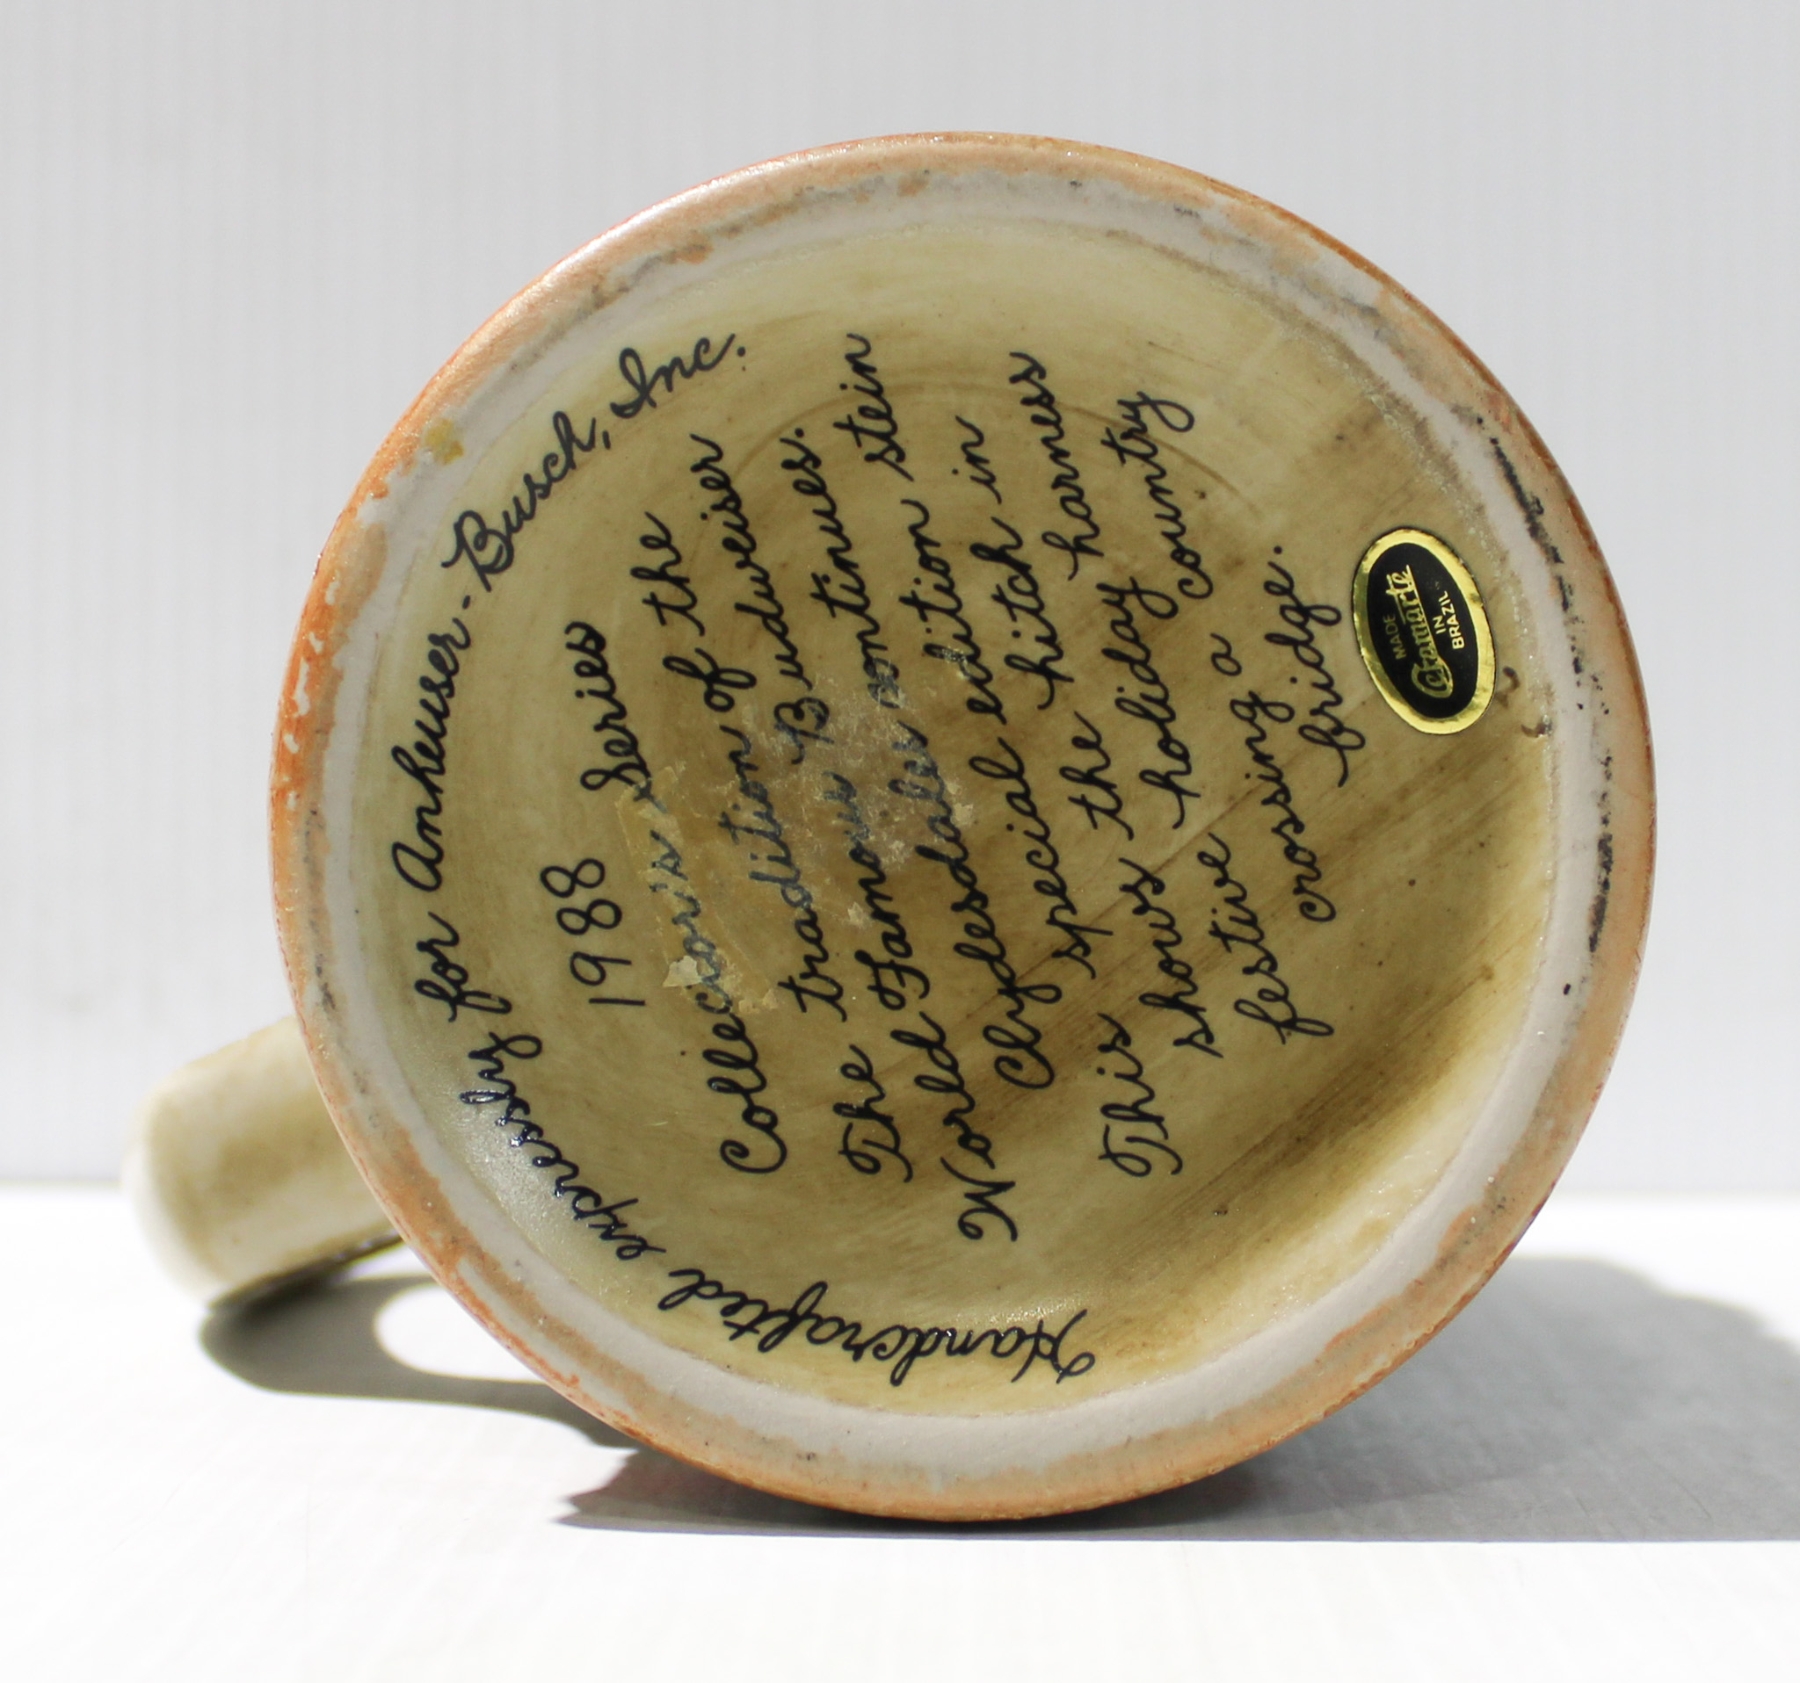 Handcrafted expressly for Anheuser-Busch, Inc.
1988
Collector's Series
The tradition of the
World Famous Budweiser
Clydesdales continues.
This special edition stein
shows the hitch in
festive holiday harness
crossing a country
bridge.
MADE
Ceramarte
IN
BRAZIL